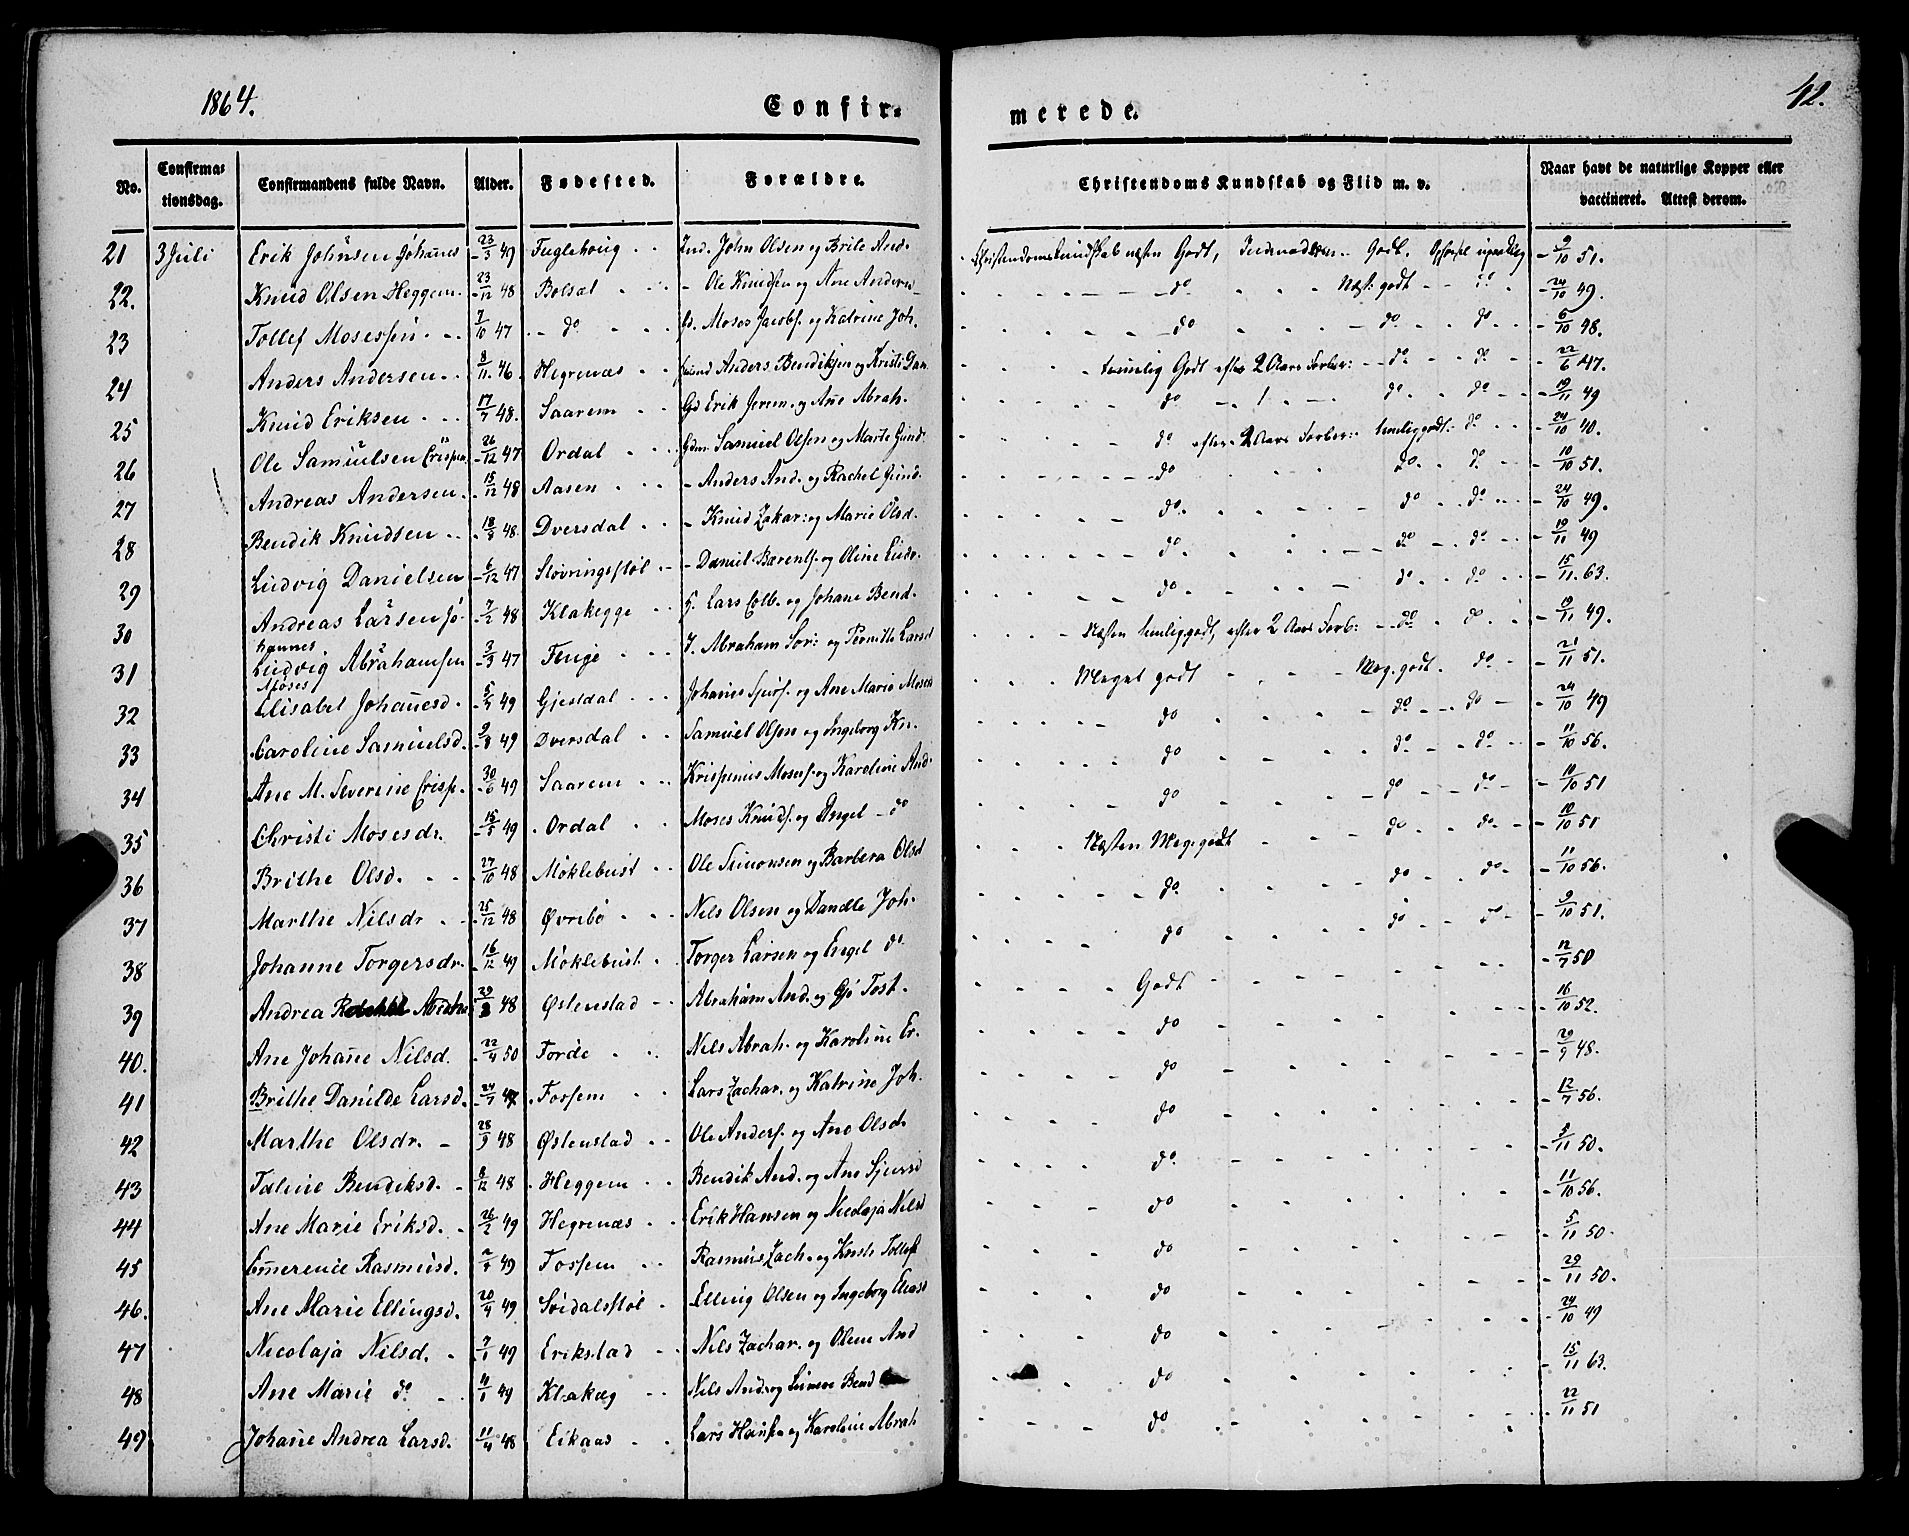 1864.
Confirmerede.
42.
No. Confirmationsdag. Confirmandens fulde Navn. Alder. Fødested. Forældre. Christendoms Kundskab og Flid m. v. Naar havt de naturlige Kopper eller vaccineret. Attest derom.
21 3 Juli Erik Johnsen Johanes 23/3 49 Fuglehoug Ind. John Olsen og Brite And. Christendomskundskab næsten Godt, Godt. 9/10 51.
22. Knud Olsen Heggem 23/12 48 Bolsæt - Ole Knudsen og Ane Anders do Næst. godt do 24/10 49.
23 Tollef Mosessen 7/10 47 do Moses Jacobs. og Katrine Joh. do do do 6/10 48.
24 Anders Andersen 8/11 46 Hegrenæs Anders Bendiksen og Kristi Dan temlig Godt efter 2 Aars Forber: do do 22/6 47.
25 Knud Eriksen 17/7 48. Saarem Gd Erik Jerem. og Ane Abrah. do 1 do do 19/11 49
26 Ole Samuelsen Crispin 26/12 47 Ordal Gdm. Samuel Olsen og Marte Gund. do efter 2 Aars Forber: temliggodt do 24/10 40.
27 Andreas Andersen 15/12 48 Aasen - Anders And. og Rachel Gund. do do do 10/10 51.
28 Bendik Knudsen 18/8 48. Dversdal - Knud Zakar: og Marie Olsd. do do do 24/10 49.
29 Ludvig Danielsen 6/12 47 Støvringsstøl - Daniel Bærents. og Oline Ludv. do do do 19/11 49
30 Andreas Larsen Johannes 7/2 48 Klakegge Lars Colb. og Johane Bend. do do do 15/11 63.
31 Ludvig Abrahamsen Moses 3/3 47 Fluge Abraham Sør: og Pernille Larsd Næsten temliggodt, efter 2 Aars Forb: do do 19/11 49.
32 Elisabet Johanesd. 5/4 49 Gjesdal Johanes Sjurs. og Ane Marie Moses Meget godt Meg. godt. do 21/11 51.
33 Caroline Samuelsd. 9/8 49 Dversdal Samuel Olsen og Ingeborg Kn. do do do 24/10 49
34 Ane M. Severine Crisp. 30/6 49 Saarem Krispinus Moses. og Karoline And. do do do 11/10 56.
35 Christi Mosesdr. 15/5 49 Ordal Moses Knuds. og Engel do do do do 10/10 51
36 Brithe Olsd. 27/10 48 Møklebust Ole Simonsen og Barbera Olsd Næsten Meg. godt do do 10/10 51
37 Marthe Nilsdr 25/12 48 Øvrebø Nils Olsen og Dandle Joh. do do do 11/10 56.
38 Johanne Torgersdr. 16/12 49 Møklebust Torger Larsen og Engel do do do do 9/10 51.
39 Andrea Abrahs 29/8 48 Østenstad Abraham And. og Tost. Godt 12/7 50
40. Ane Johane Nilsd. 22/4 50 Førde Nils Abrah. og Karoline Er. do 16/10 52.
41 Brithe Danilde Larsd. 24/7 47 Fossem Lars Zachar. og Katrine Joh. do 29/9 48.
42 Marthe Olsdr. 28/9 48 Østenstad Ole Anders. og Ane Olsdr do 12/7 56.
43 Taline Bendiksd. 8/12 48 Heggem Bendik And. og Ane Sjursd do 5/11 50.
44 Ane Marie Eriksd. 26/2 49 Hegrenæs Erik Hansen og Nicolaja Nilsd do 11/10 56.
45 Emerence Rasmusd. 49 Fossem Rasmus Zach. og Tollefs do 5/11 50.
46. Ane Marie Ellingsd. 20/4 49 Søidalsstøl Elling Olsen og Ingeborg Eliasd do 29/11 50.
47 Nicolaja Nilsd. 7/1 49 Erikstad Nils Zachar. og Oline And do 24/10 49
48 Ane Marie do 49 Klakeg Nils And. og Bend do 15/11 63.
49 Johane Andrea Larsd. 11/4 48 Eikaas Lars Hans. og Karoline Abrah do 22/11 51